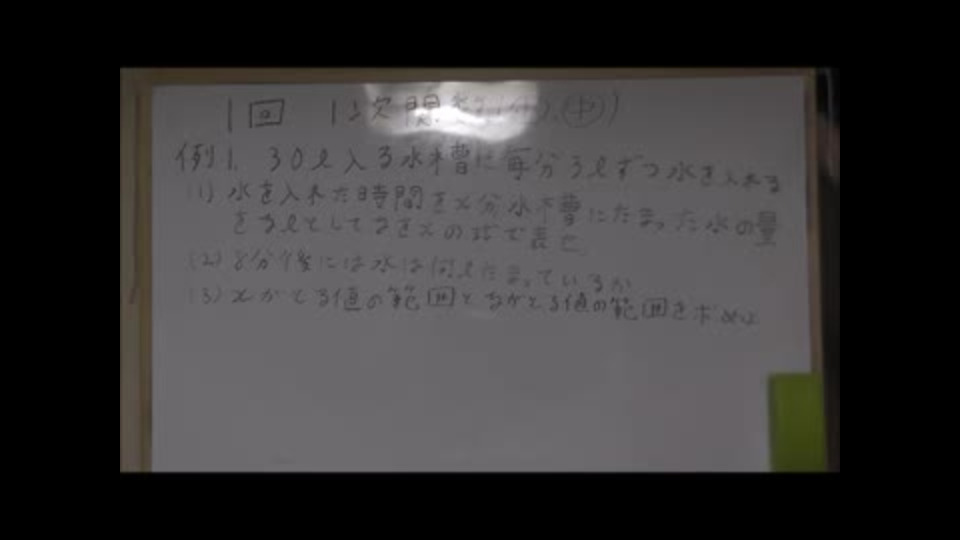 1回 1次関数
例1. 30ℓ入る水槽に毎分3ℓずつ水を入れる
(1) 水を入れた時間をx分水槽にたまった水の量
をyℓとしてyをxの式で表せ
(2) 8分後には水は何ℓたまっているか
(3) xがとる値の範囲とyがとる値の範囲を求めよ